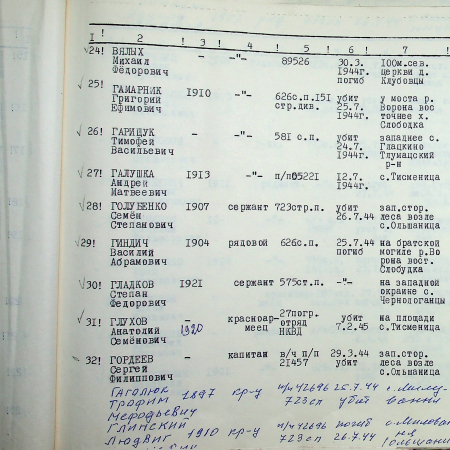 1! 2 ! 3 ! 4 ! 5 ! 6 ! 7 !
24! ВЯЛЫХ - -"- 89526 30.3. 100м.сев.
Михаил 1944г. церкви д.
Фёдорович погиб Клубовцы
25! ГАМАРНИК 1910 -"- 626с.п.151 убит у моста р.
Григорий стр.див. 25.7. Ворона вос
Ефимович 1944г. точнее х.
Слободка
26! ГАРИЦУК - -"- 581 с.п. убит западнее с.
Тимофей 24.7. Глацкино
Васильевич 1944г. Тлумацкий
р-н
27! ГАЛУШКА 1913 -"- п/п05221 12.7. с.Тисменица
Андрей 1944г.
Матвеевич
28! ГОЛУБЕНКО 1907 сержант 723стр.п. убит зап.стор.
Семён 26.7.44 леса возле
Степанович с.Ольшаница
29! ГИНДИЧ 1904 рядовой 626с.п. 25.7.44 на братской
Василий погиб могиле р.Во
Абрамович рона вост.
Слободка
30! ГЛАДКОВ 1921 сержант 575ст.п. -"- на западной
Степан окраине с.
Федорович Чернологанцы
31! ГЛУХОВ красноар- 27погр. убит на площади
Анатолий 1920 меец отряд 7.2.45 с.Тисменица
Семёнович НКВД
32! ГОРДЕЕВ - капитан в/ч п/п 29.3.44 зап.стор.
Сергей 21457 убит леса возле
Филиппович с.Ольшаница
ГАГОЛЮК 1897 кр-ц п/п 42696 26.7.44 с.
Трофим 723сп убит
Мефодьевич
Глинский п/п 42696 погиб с.
Людвиг 1910 кр-ц 723сп 26.7.44